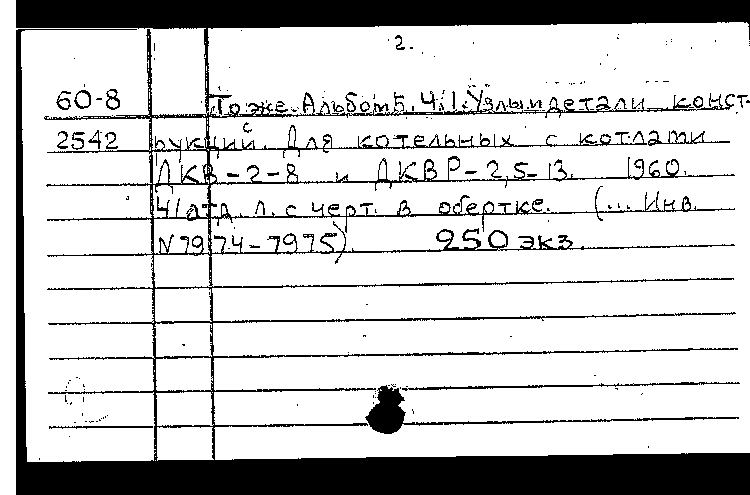 2.
60-8 То же. Альбом 5. Ч. 1. Узлы и детали конст-
2542 рукций. Для котельных с котлами
ДКВ-2-8 и ДКВР-2,5-13. 1960.
41 отд. л. с черт. в обертке. (... Инв.
N 7974-7975). 250 экз.